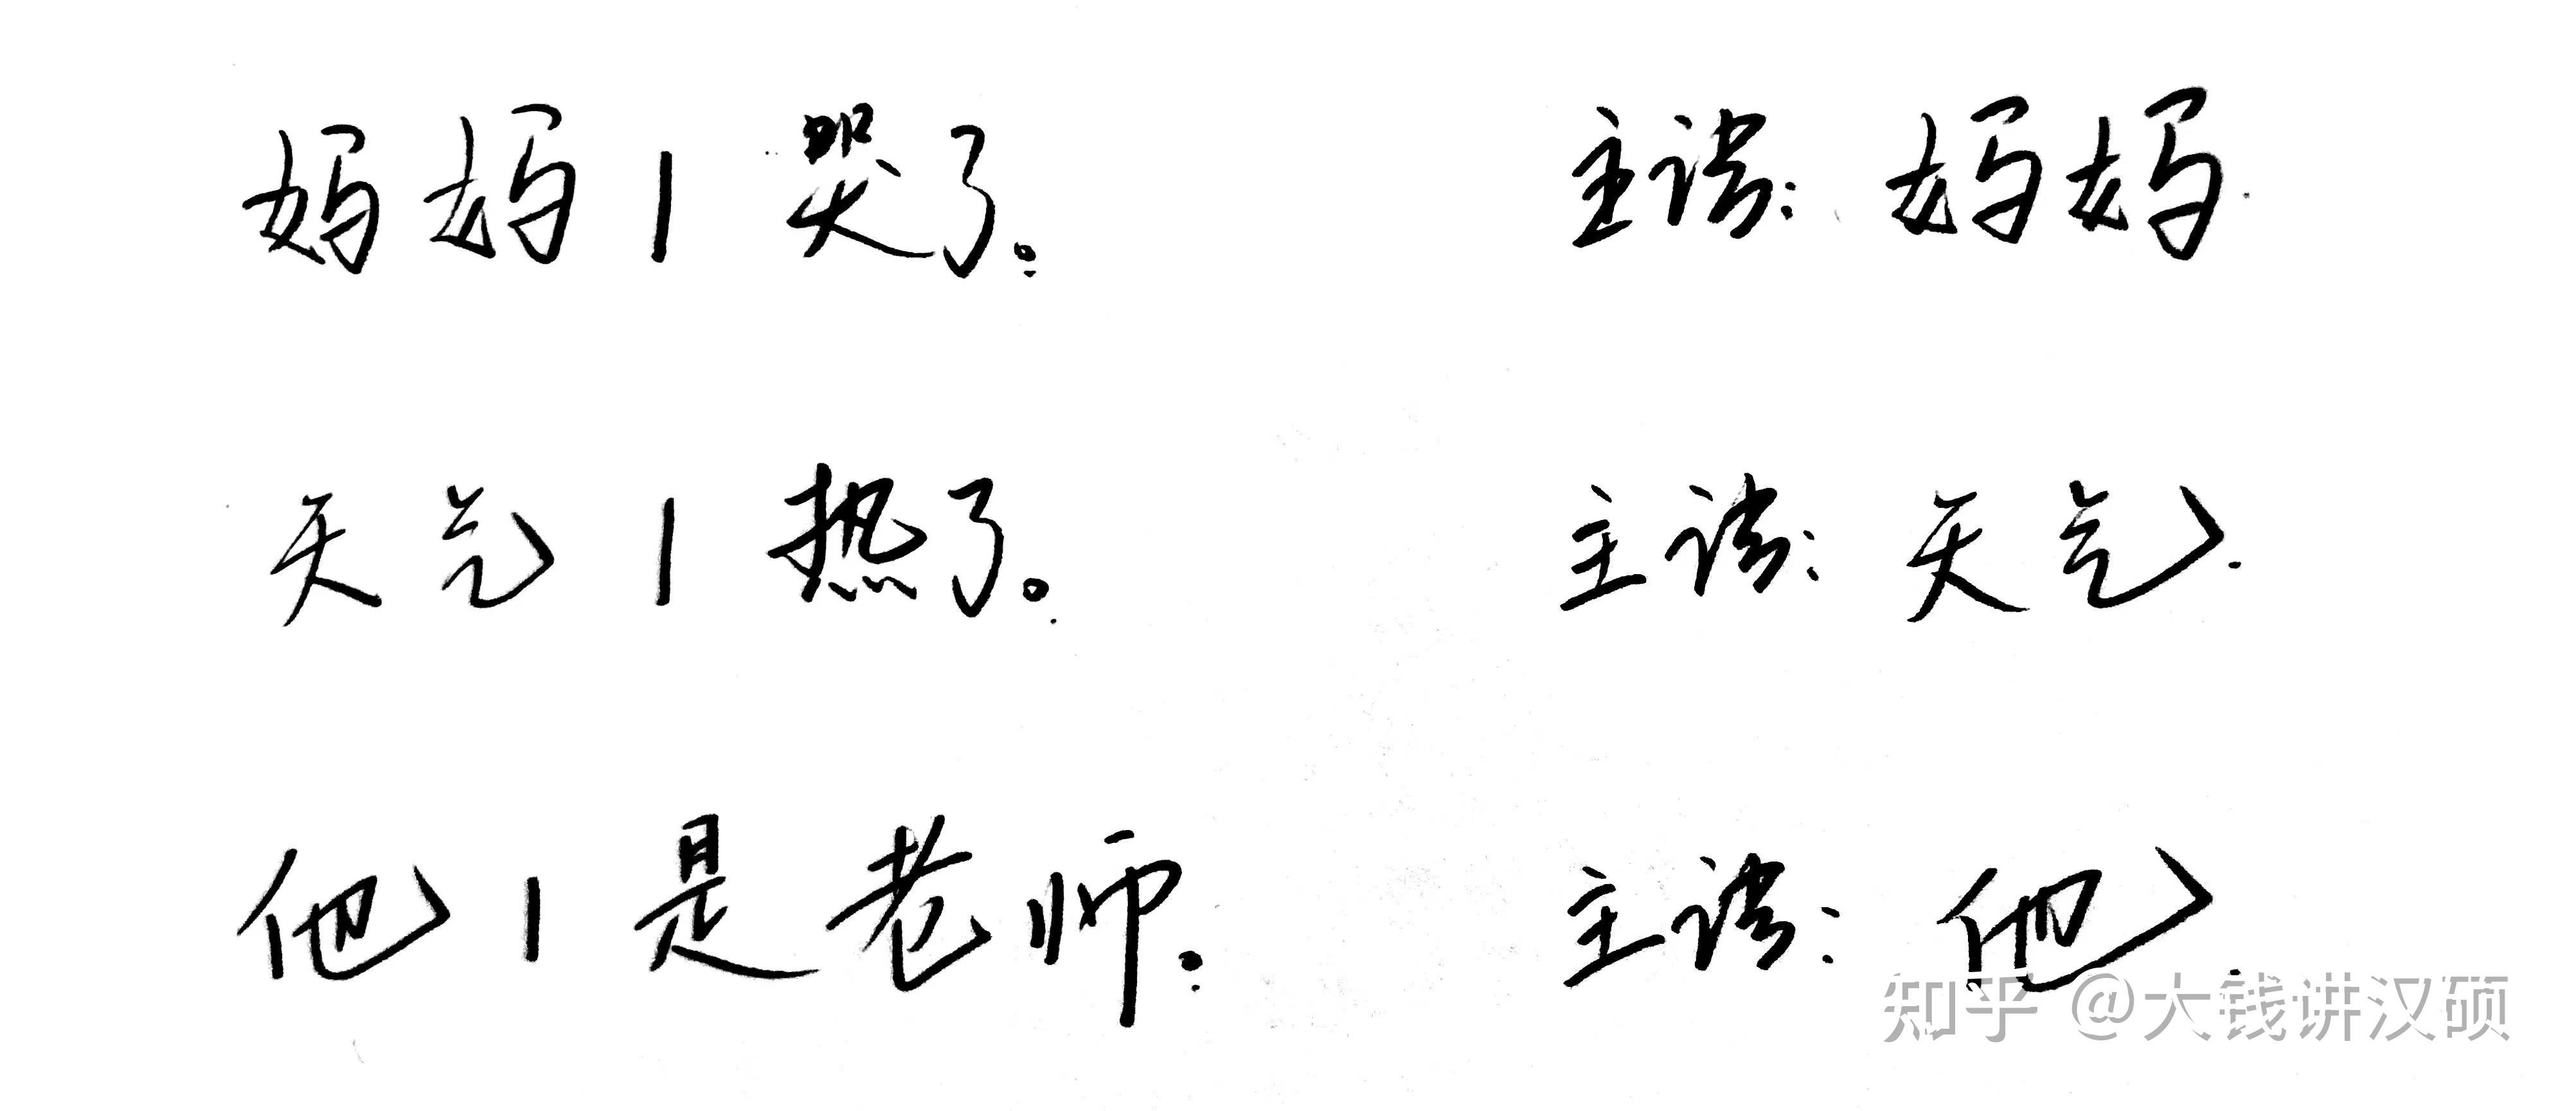 妈妈 | 哭了。 主语：妈妈
天气 | 热了。 主语：天气.
他 | 是老师。 主语：他.
知乎 @大钱讲汉硕